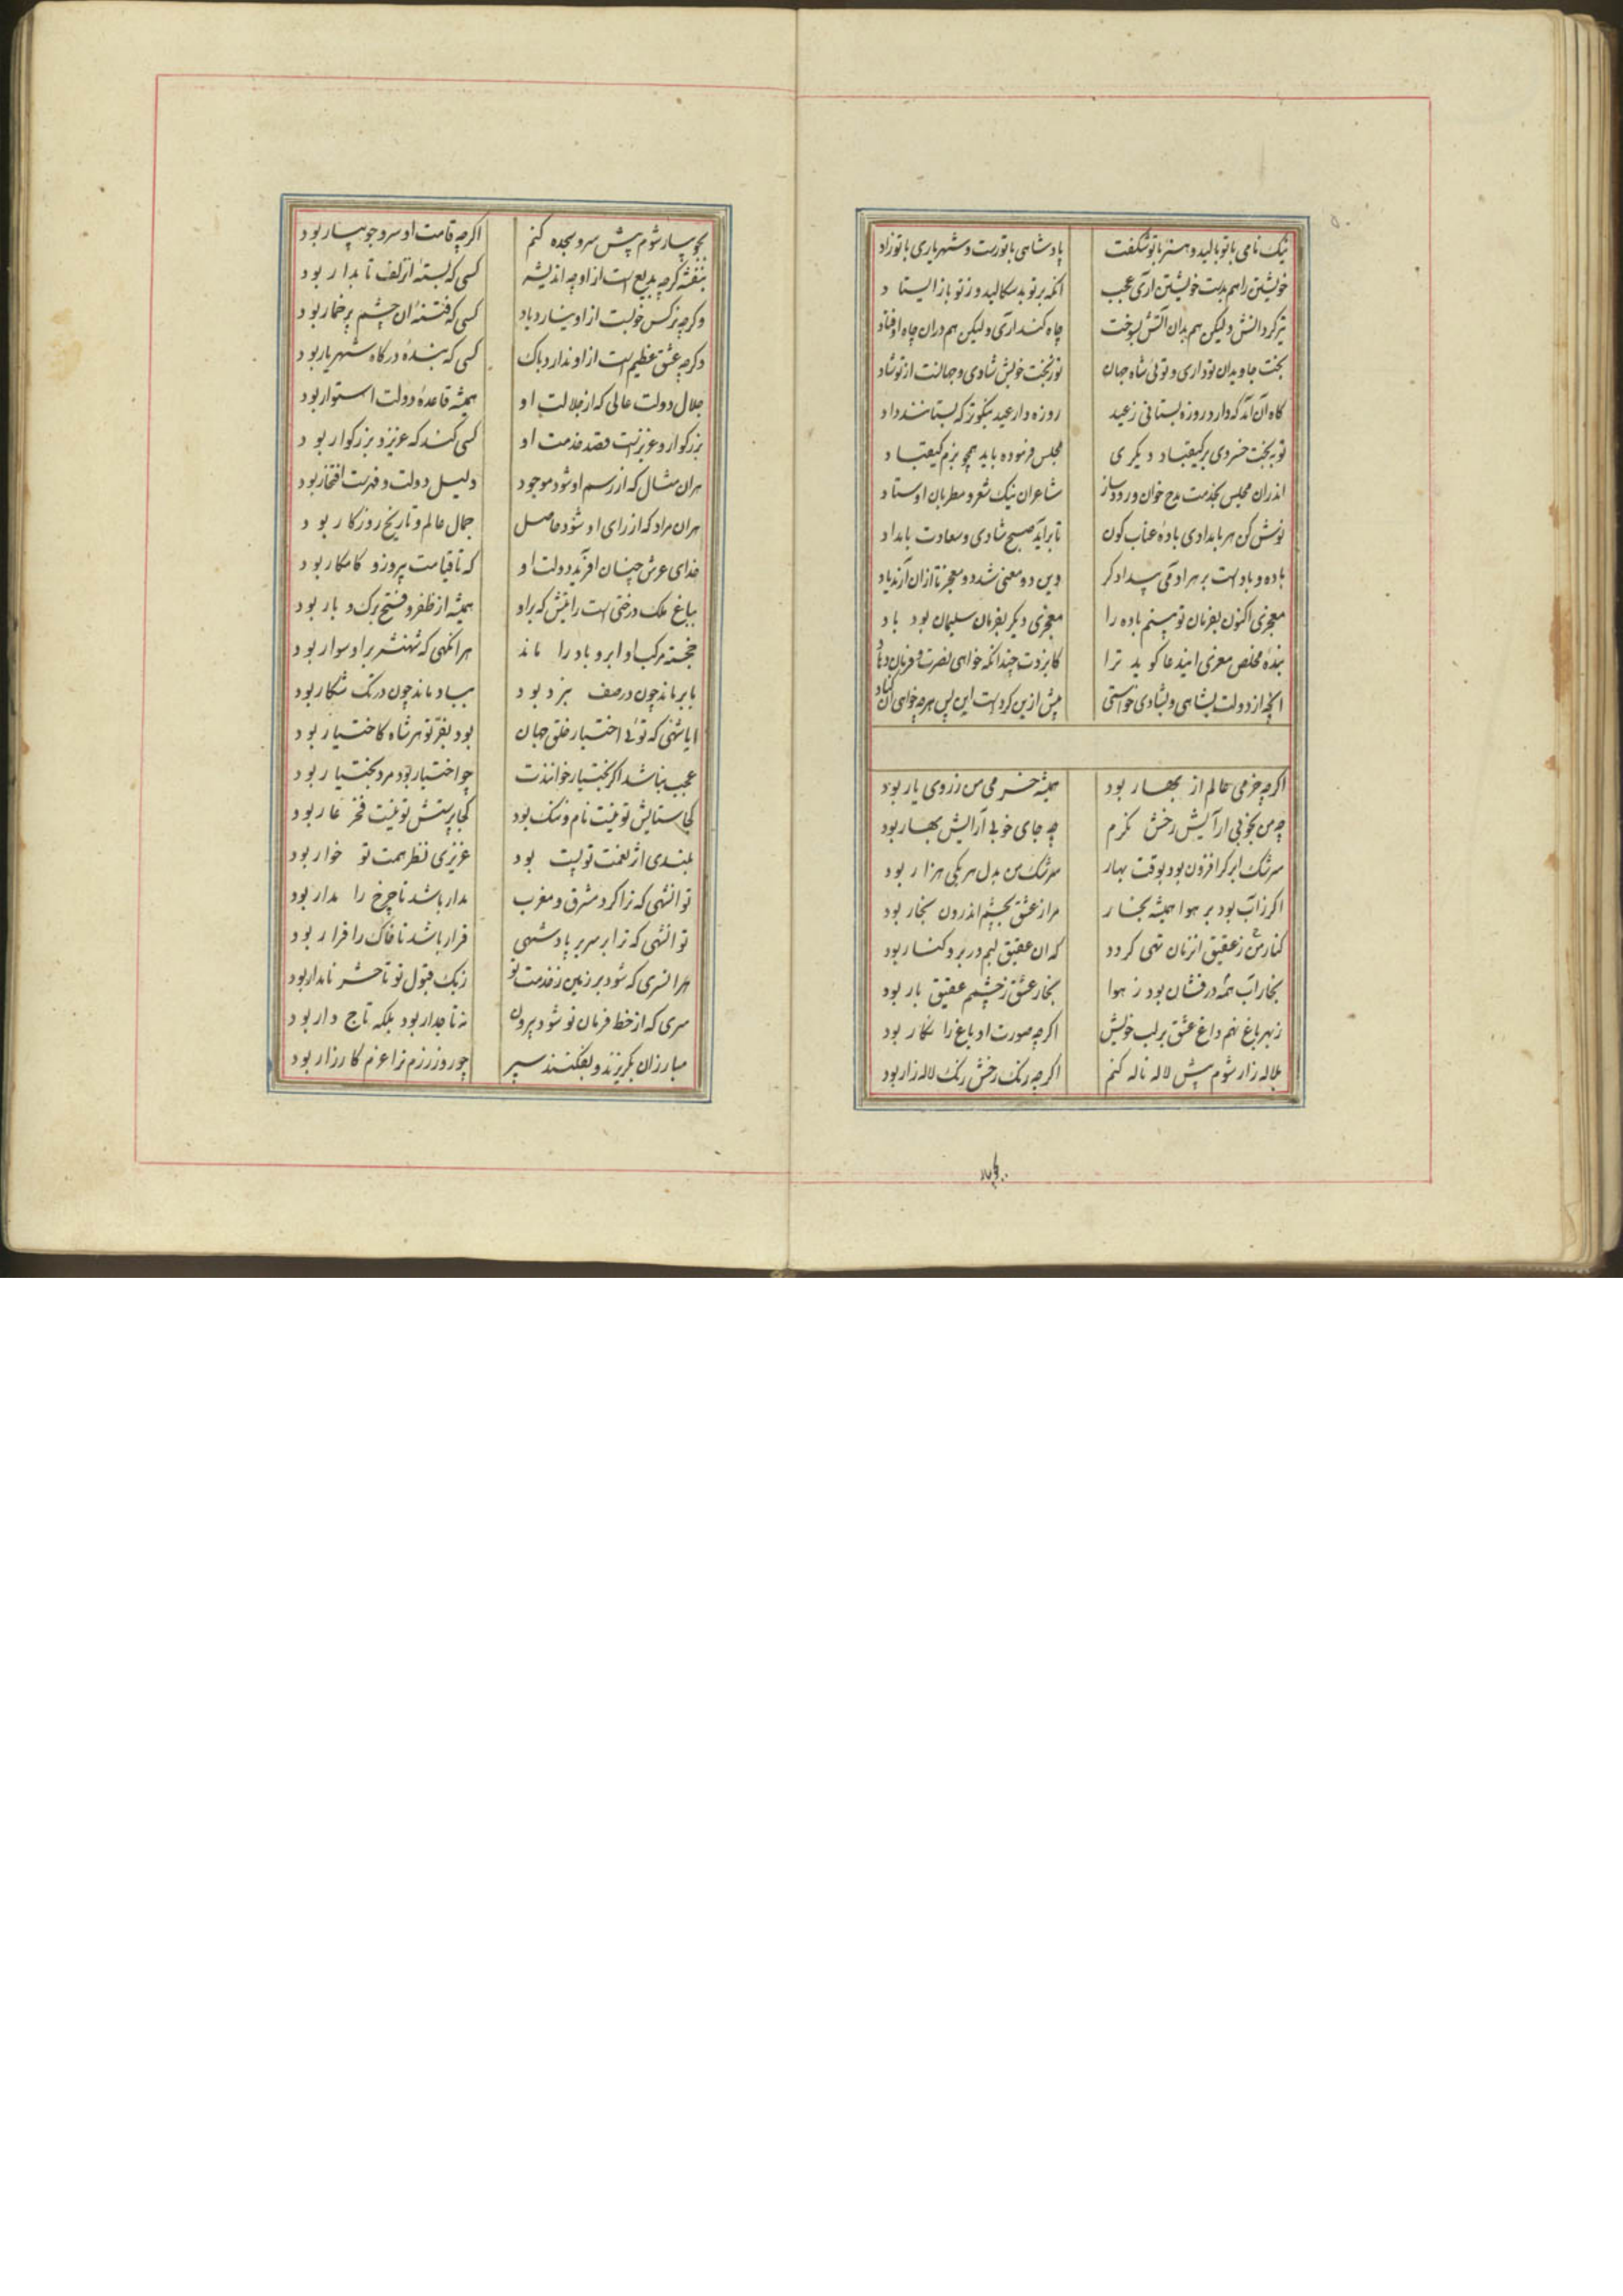 نیک نامی با تو بالید و هنر با تو شکفت پادشاهی با تو رست و شهریاری با تو زاد
خویشتن را هم بدست خویشتن آری عجب آنکه بر تو بد سکالید و ز تو باز ایستاد
تیز کرد آتش ولیکن هم بدان آتش بسوخت چاه کند آری ولیکن هم در آن چاه اوفتاد
بخت جاویدان تو داری و توئی شاه جهان تو ز بخت خویش شادی و جهانت از تو شاد
گاه آن آمد که دارد روزه بستانی ز عید روزه دار عید نیکوتر که بستانند داد
تو به بخت خسروی بر کیقباد دیگری مجلس فرموده باید همچو بزم کیقباد
اندران مجلس بخدمت مدح خوان و رود ساز شاعران نیک شعر و مطربان اوستاد
نوش کن هر بامدادی بادهٔ عناب گون تا برآید صبح شادی و سعادت بامداد
باده و باد است بر هر آدمی بیدادگر وین دو معنی شد دو معجز تا از ان آرند یاد
معجزی اکنون بفرمان تو بینم باده را معجزی دیگر بفرمان سلیمان بود باد
بندهٔ مخلص معزی این دعا گوید ترا کایزدت چندانکه خواهی نصرت و فرمان دهاد
آنچه از دولت بشاهی و بشادی خواستی پیش ازین کرد است این پس هرچه خواهی آن کناد
اگرچه خرمی عالم از بهار بود همیشه خرمی من ز روی یار بود
چو من بخوبی آرایش رخش نگرم چه جای خوبی آرایش بهار بود
سرشک ابر گر افزون بود بوقت بهار سرشک من بدل هر یکی هزار بود
اگر ز آب بود بر هوا همیشه بخار مرا ز عشق بچشم اندرون بخار بود
کنار من ز عقیق آنزمان تهی گردد که آن عقیق لبم در بر و کنار بود
بخار آب همه در فشان بود ز هوا بخار عشق ز چشمم عقیق بار بود
ز بهر باغ نهم داغ عشق بر لب خویش اگرچه صورت او باغ را نگار بود
بلاله زار شوم پیش لاله ناله کنم اگرچه رنگ رخش رنگ لاله زار بود
بجویبار
بجویبار شوم پیش سرو سجده کنم اگرچه قامت او سرو جویبار بود
بنفشه گرچه بدیع است ازو چه اندیشه کسی که بستهٔ آن زلف تابدار بود
وگرچه نرگس خوبست ازو نیارد یاد کسی که فتنهٔ آن چشم پرخمار بود
وگرچه عشق عظیم است ازو ندارد باک کسی که بندهٔ درگاه شهریار بود
جلال دولت عالی که از جلالت او همیشه قاعدهٔ دولت استوار بود
بزرگوار و عزیزست قصد خدمت او کسی کند که عزیز و بزرگوار بود
هر آن مثال که از رسم او شود موجود دلیل دولت و فهرست افتخار بود
هر آن مراد که از رای او شود حاصل جمال عالم و تاریخ روزگار بود
خدای عرش چنان آفرید دولت او که تا قیامت پیروز و کامکار بود
بباغ ملک درختی است رایتش که برو همیشه از ظفر و فتح برگ و بار بود
خجسته مرکب او ابر و باد را ماند هر آنگهی که شهنشه برو سوار بود
بابر ماند چون در صف نبرد بود بباد ماند چون در تک شکار بود
ایا شهی که توئی اختیار خلق جهان بود بفر تو هر شاه کاختیار بود
عجب نباشد اگر بختیار خوانندت چو اختیار بود مرد بختیار بود
کجا ستایش تو نیست نام و ننگ بود کجا پرستش تو نیست فخر عار بود
بلندی از نعمت تو پست بود عزیزی نظر همت تو خوار بود
تو آنشهی که ترا گرد مشرق و مغرب مدار باشد تا چرخ را مدار بود
تو آنشهی که ترا بر سریر پادشهی قرار باشد تا خاک را قرار بود
هر افسری که شود بر زمین ز خدمت تو ز نیک قبول تو تا حشر نامدار بود
سری که از خط فرمان تو شود بیرون نه تاجدار بود بلکه تاج دار بود
مبارزان بگریزند و بفکنند سپر چو روز رزم ترا عزم کارزار بود